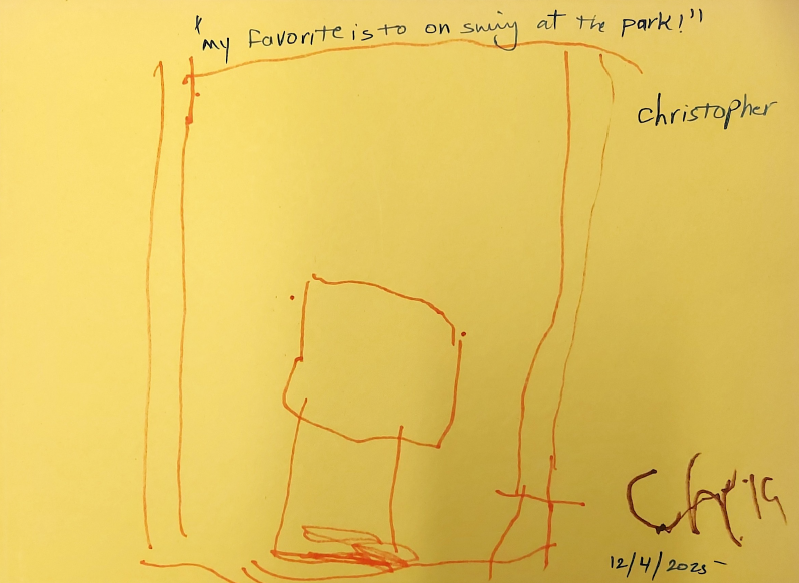 "my favorite is to on swing at the park!"
christopher
Chris
12/4/2025